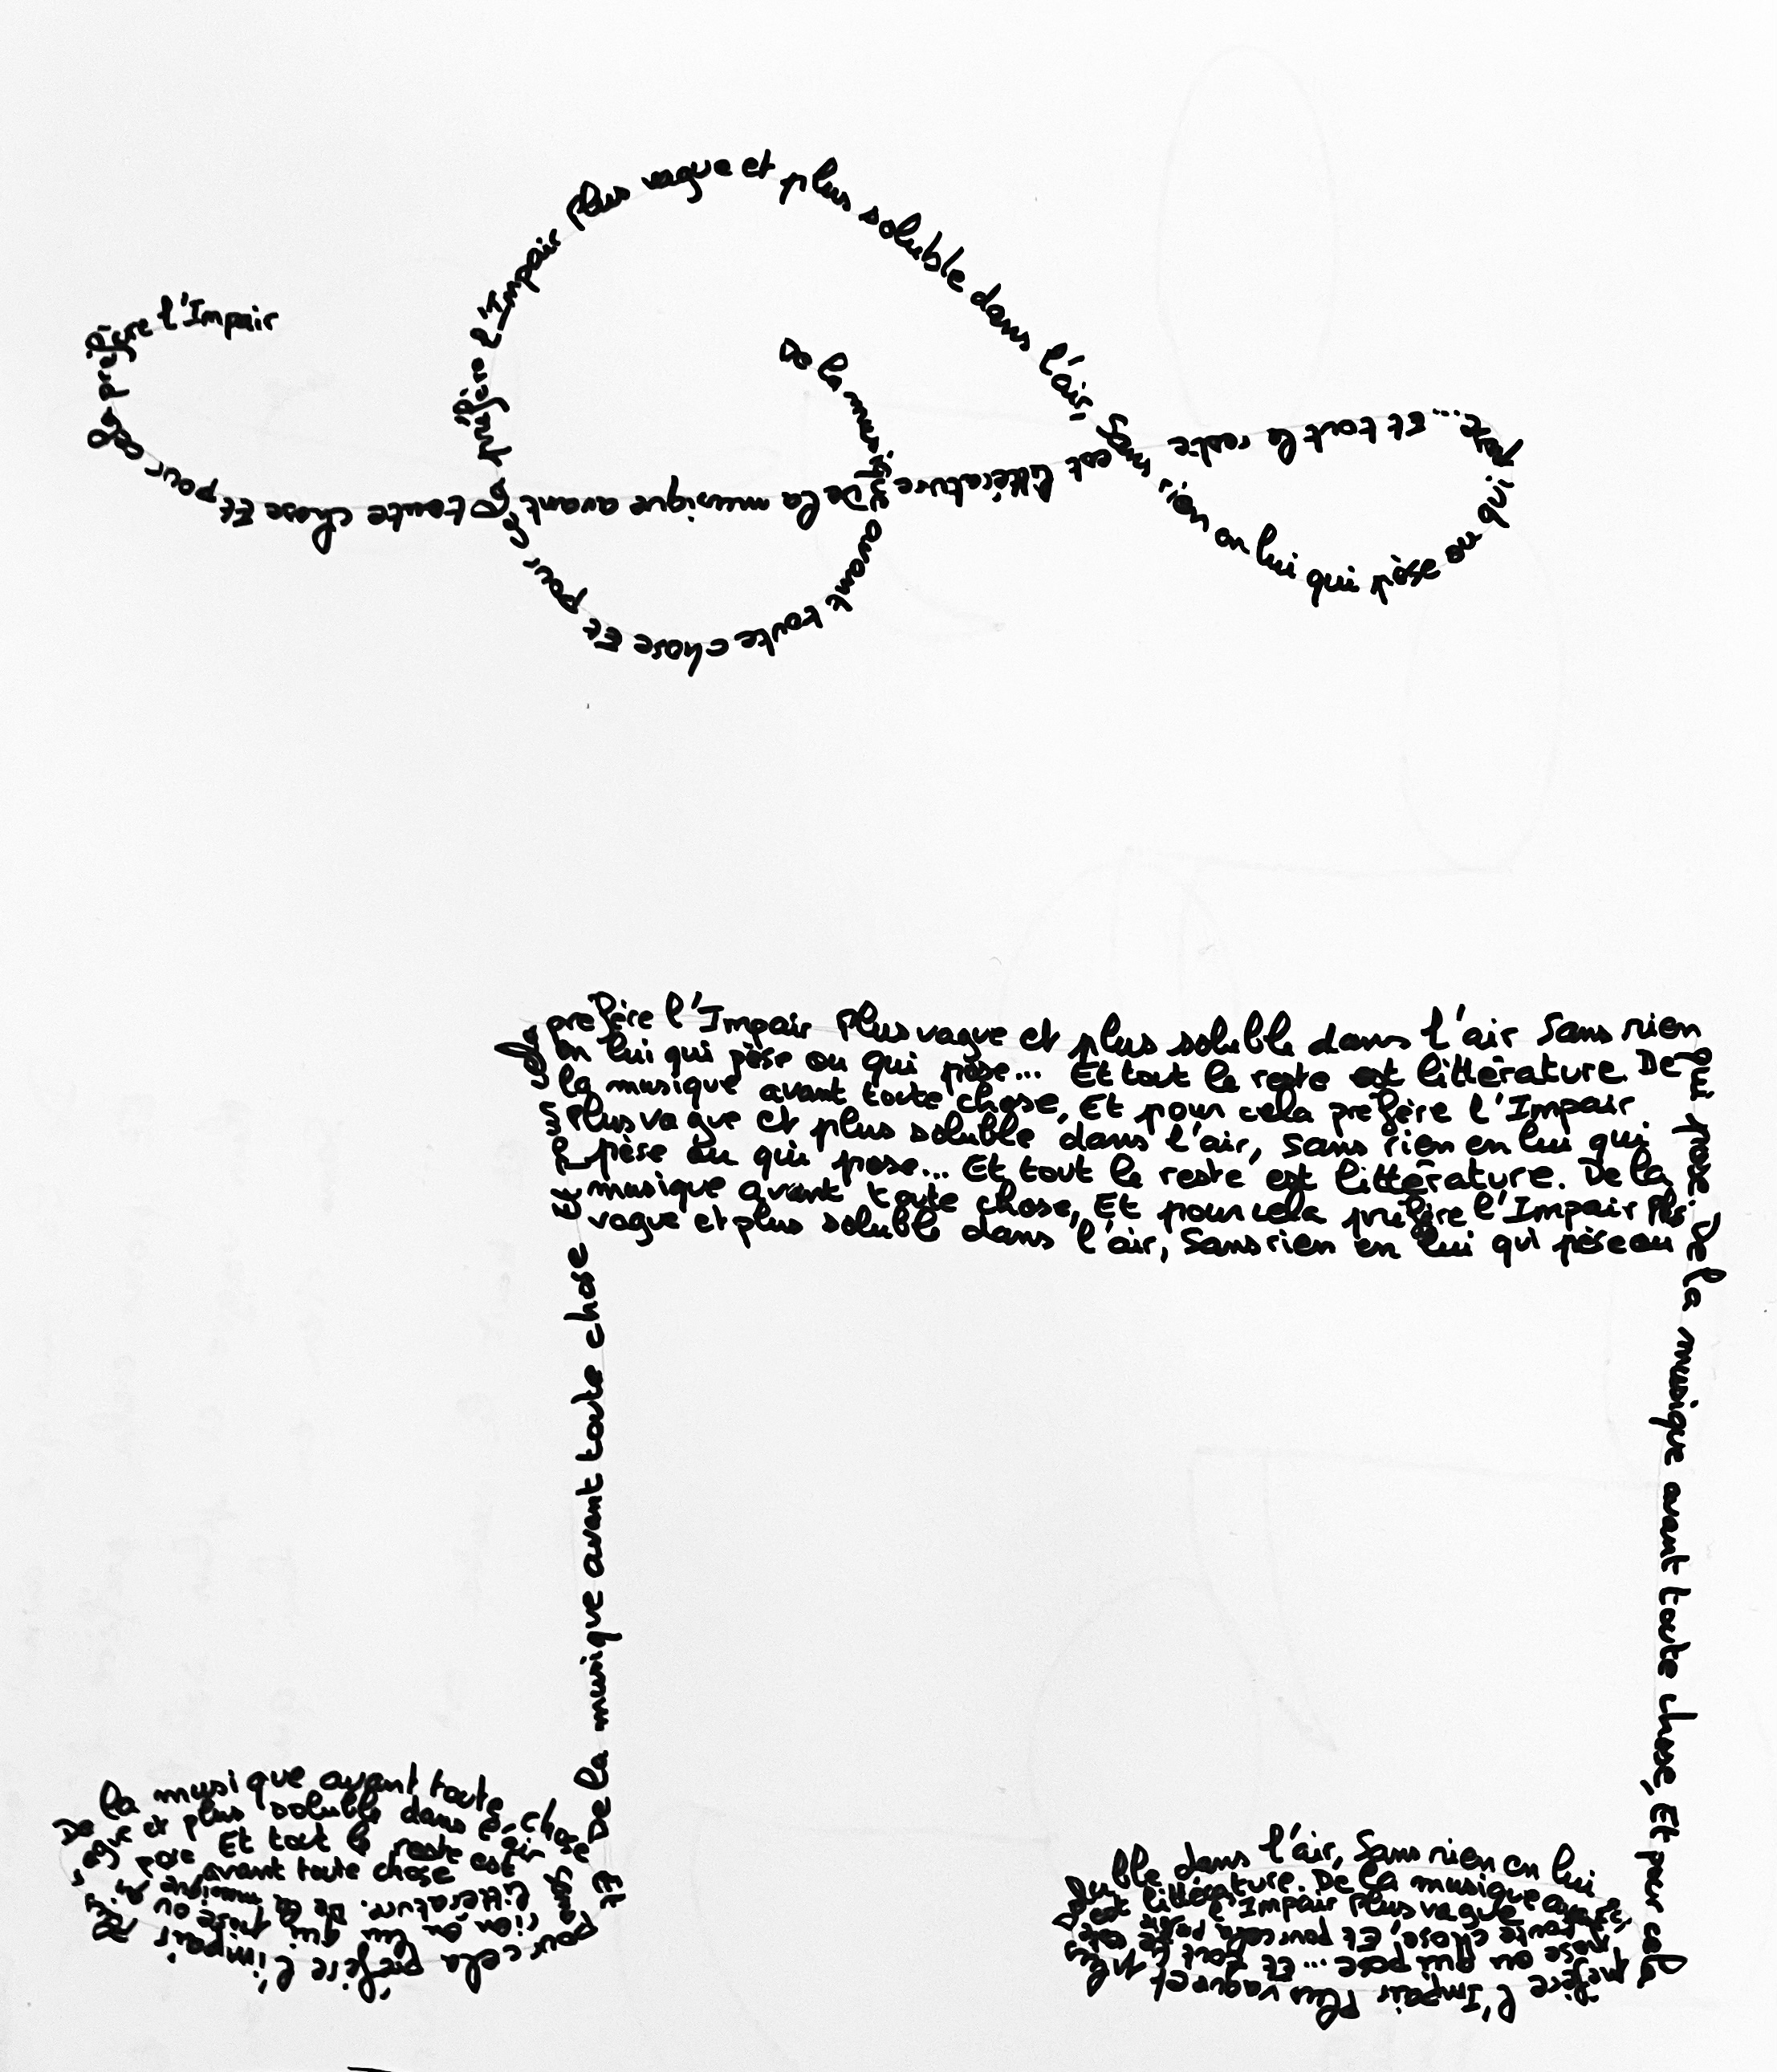 De la musique avant toute chose Et pour cela préfère l'Impair plus vague et plus soluble dans l'air, Sans rien en lui qui pèse ou qui pose... Et tout le reste est littérature. De la musique avant toute chose Et pour cela préfère l'Impair
De la musique avant toute chose Et pour cela
préfère l'Impair Plus vague et plus soluble dans l'air Sans rien
en lui qui pèse ou qui pose... Et tout le reste est littérature. De
la musique avant toute chose, Et pour cela préfère l'Impair
Plus vague et plus soluble dans l'air, Sans rien en lui qui
pèse ou qui pose... Et tout le reste est littérature. De la
musique avant toute chose, Et pour cela préfère l'Impair Plus
vague et plus soluble dans l'air, Sans rien en lui qui pèse ou
qui pose De la musique avant toute chose, Et pour cela
préfère l'Impair Plus vague et plus
soluble dans l'air, Sans rien en lui
pèse ou qui pose... Et tout le reste
est littérature. De la musique avant
toute chose, Et pour cela
l'Impair Plus vague
De la musique avant toute chose Et
pour cela préfère l'impair
vague et plus soluble dans l'air Sans
rien en lui qui pèse ou qui
pose Et tout le reste est
littérature. De la musique
avant toute chose